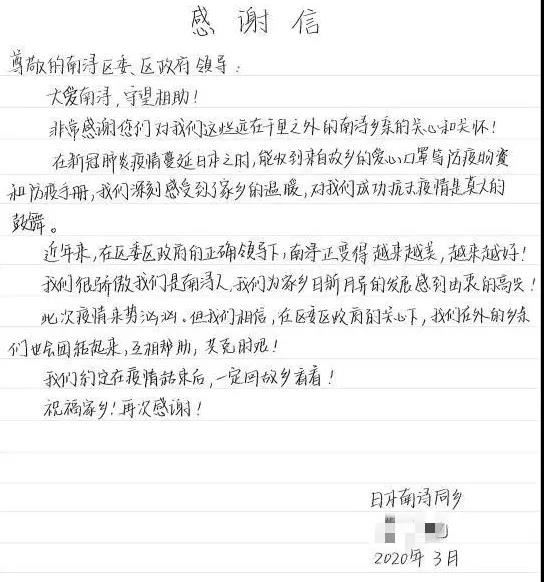 感谢信
尊敬的南浔区委、区政府领导：
大爱南浔，守望相助！
非常感谢您们对我们这些远在千里之外的南浔乡亲的关心和关怀！
在新冠肺炎疫情蔓延日本之时，能收到来自故乡的爱心口罩等防疫物资
和防疫手册，我们深刻感受到了家乡的温暖，对我们成功抗击疫情是莫大的
鼓舞。
近年来，在区委区政府的正确领导下，南浔正变得越来越美，越来越好！
我们很骄傲我们是南浔人，我们为家乡日新月异的发展感到由衷的高兴！
此次疫情来势汹汹。但我们相信，在区委区政府的关心下，我们在外的乡亲
们也会团结起来，互相帮助，共克时艰！
我们约定在疫情结束后，一定回故乡看看！
祝福家乡！再次感谢！
日本南浔同乡
2020年3月